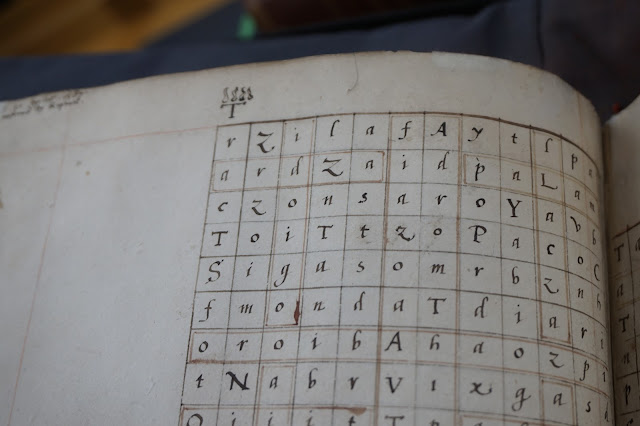 T
r Z i l a f A y t l p a
a r d Z a i d p a L a m
c z o n s a r o Y a v b
T o i T t z o P a c o C
S i g a s o m r b z n h
f m o n d a T d i a r i
o r o i b A h a o z p i
t N a b r V i x g a s
O i i i t T